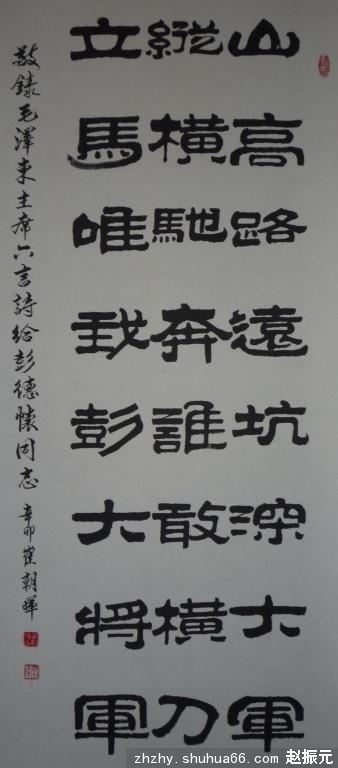 山高路遠坑深大軍
縱橫馳奔誰敢橫刀
立馬唯我彭大將軍
敬錄毛澤東主席六言詩給彭德懷同志 辛卯崔朝暉
zhzhy.shuhua66.com 赵振元